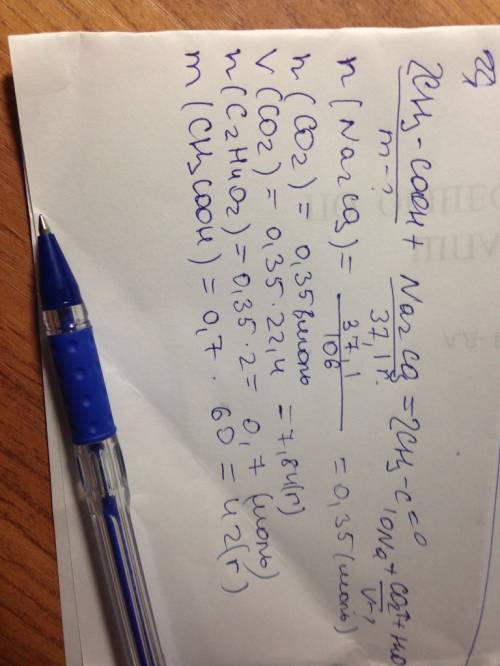 2CH3-COOH + Na2CO3 = 2CH3-C=O ONa + CO2 + H2O
m-? 37,1г. V-?
n (Na2CO3) = 37,1 / 106 = 0,35 (моль)
n (CO2) = 0,35 моль
V (CO2) = 0,35 · 22,4 = 7,84 (г)
n (C2H4O2) = 0,35 · 2 = 0,7 (моль)
m (CH3COOH) = 0,7 · 60 = 42 (г)